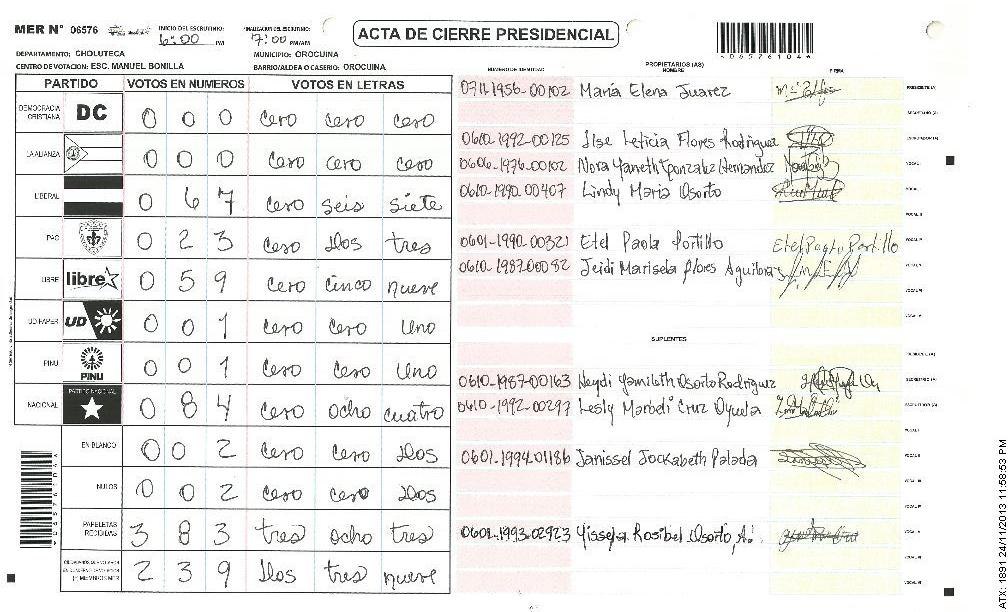 MER N° 06576
INICIO DEL ESCRUTINIO: 6:00 PM
7:00 PM/AM
ACTA DE CIERRE PRESIDENCIAL
*065761044*
DEPARTAMENTO: CHOLUTECA
MUNICIPIO: OROCUINA
CENTRO DE VOTACION: ESC. MANUEL BONILLA
BARRIO/ALDEA O CASERIO: OROCUINA
NUMERO DE IDENTIDAD
PROPIETARIOS (AS)
NOMBRE
FIRMA
PARTIDO VOTOS EN NUMEROS VOTOS EN LETRAS
DEMOCRACIA CRISTIANA DC 0 0 0 cero cero cero
LA ALIANZA 0 0 0 cero cero cero
LIBERAL 0 6 7 cero seis siete
PAC 0 2 3 cero dos tres
LIBRE libre 0 5 9 cero cinco nueve
UD FAPER UD 0 0 1 cero cero uno
PINU PINU 0 0 1 cero cero uno
NACIONAL PARTIDO NACIONAL 0 8 4 cero ocho cuatro
EN BLANCO 0 0 2 cero cero dos
NULOS 0 0 2 cero cero dos
PAPELETAS RECIBIDAS 3 8 3 tres ocho tres
(+) MIEMBROS MER 2 3 9 dos tres nueve
0711-1956-00102 Maria Elena Juarez PRESIDENTE (A)
SECRETARIO (A)
0610-1992-00125 Ilse Leticia Flores Rodriguez ESCRUTADOR (A)
0606-1976-00102 Nora Yaneth Gonzalez Hernandez VOCAL I
0610-1990-00407 Lindy Maria Osorto
0601-1990-00321 Etel Paola Portillo Etel Paola Portillo
0610-1987-00082 Jeidi Marisela Flores
SUPLENTES
PRESIDENTE (A)
0610-1987-00163 Heydi Yamileth Osorto Rodriguez SECRETARIO (A)
0610-1992-00297 Lesly Marbdi Cruz Oyuela ESCRUTADOR (A)
0601-1994-01186 Janissel Jockabeth Palada
0601-1993-02923 Yissela Rosibel Osorto, A.
ATX: 1891 24/11/2013 11:58:53 PM